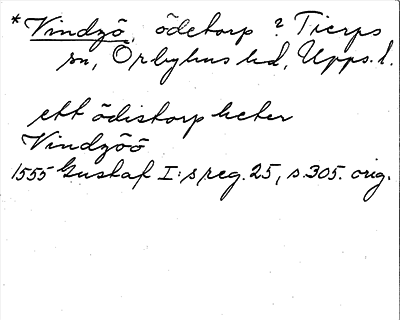 *Vindzö, ödetorp ? Tierps
sn, Örbyhus hd, Upps. l.
ett ödistorp heter
Vindzöö
1555 Gustaf I:s reg. 25, s. 305. orig.